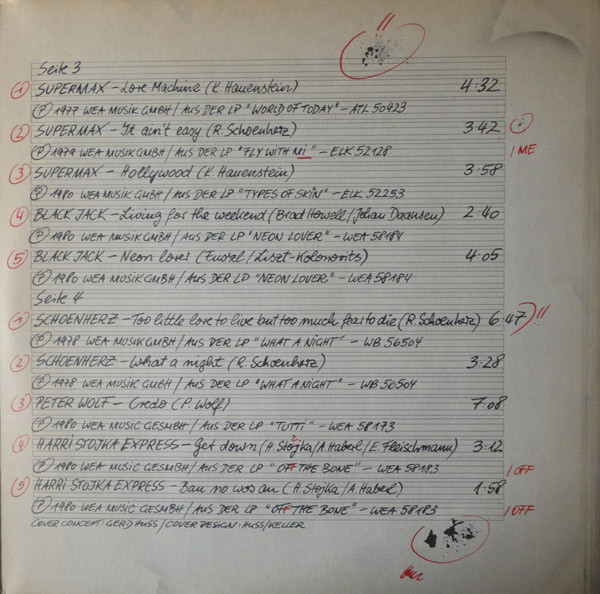 Seite 3
① SUPERMAX – Love Machine (K. Hauenstein) 4:32
Ⓟ 1977 WEA MUSIK GMBH / AUS DER LP "WORLD OF TODAY" – ATL 50423
② SUPERMAX – It ain't easy (R. Schoenherz) 3:42
Ⓟ 1979 WEA MUSIK GMBH / AUS DER LP "FLY WITH MI" – ELK 52128 / ME
③ SUPERMAX – Hollywood (K. Hauenstein) 3:58
Ⓟ 1980 WEA MUSIK GMBH / AUS DER LP "TYPES OF SKIN" – ELK 52253
④ BLACK JACK – Living for the weekend (Brad Howell / Johan Daansen) 2:40
Ⓟ 1980 WEA MUSIK GMBH / AUS DER LP "NEON LOVER" – WEA 58184
⑤ BLACK JACK – Neon lover (/ Liszt-Kolonovits) 4:05
Ⓟ 1980 WEA MUSIK GMBH / AUS DER LP "NEON LOVER" – WEA 58184
Seite 4
① SCHOENHERZ – Too little love to live but too much fear to die (R. Schoenherz) 6:47
Ⓟ 1978 WEA MUSIK GMBH / AUS DER LP "WHAT A NIGHT" – WB 56504
② SCHOENHERZ – What a night (R. Schoenherz) 3:28
Ⓟ 1978 WEA MUSIK GMBH / AUS DER LP "WHAT A NIGHT" – WB 56504
③ PETER WOLF – Credo (P. Wolf) 7:08
Ⓟ 1980 WEA MUSIC GESMBH / AUS DER LP "TUTTI" – WEA 58173
④ HARRI STOJKA EXPRESS – Get down (H. Stojka / A. Haberl / E. Fleischmann) 3:12
Ⓟ 1980 WEA MUSIC GESMBH / AUS DER LP "OFF THE BONE" – WEA 58183 / OFF
⑤ HARRI STOJKA EXPRESS – Bau no was au (H. Stojka / A. Haberl) 1:58
Ⓟ 1980 WEA MUSIC GESMBH / AUS DER LP "OFF THE BONE" – WEA 58183 / OFF
COVER CONCEPT: GERD HUSS / COVER DESIGN: HUSS/KELLER